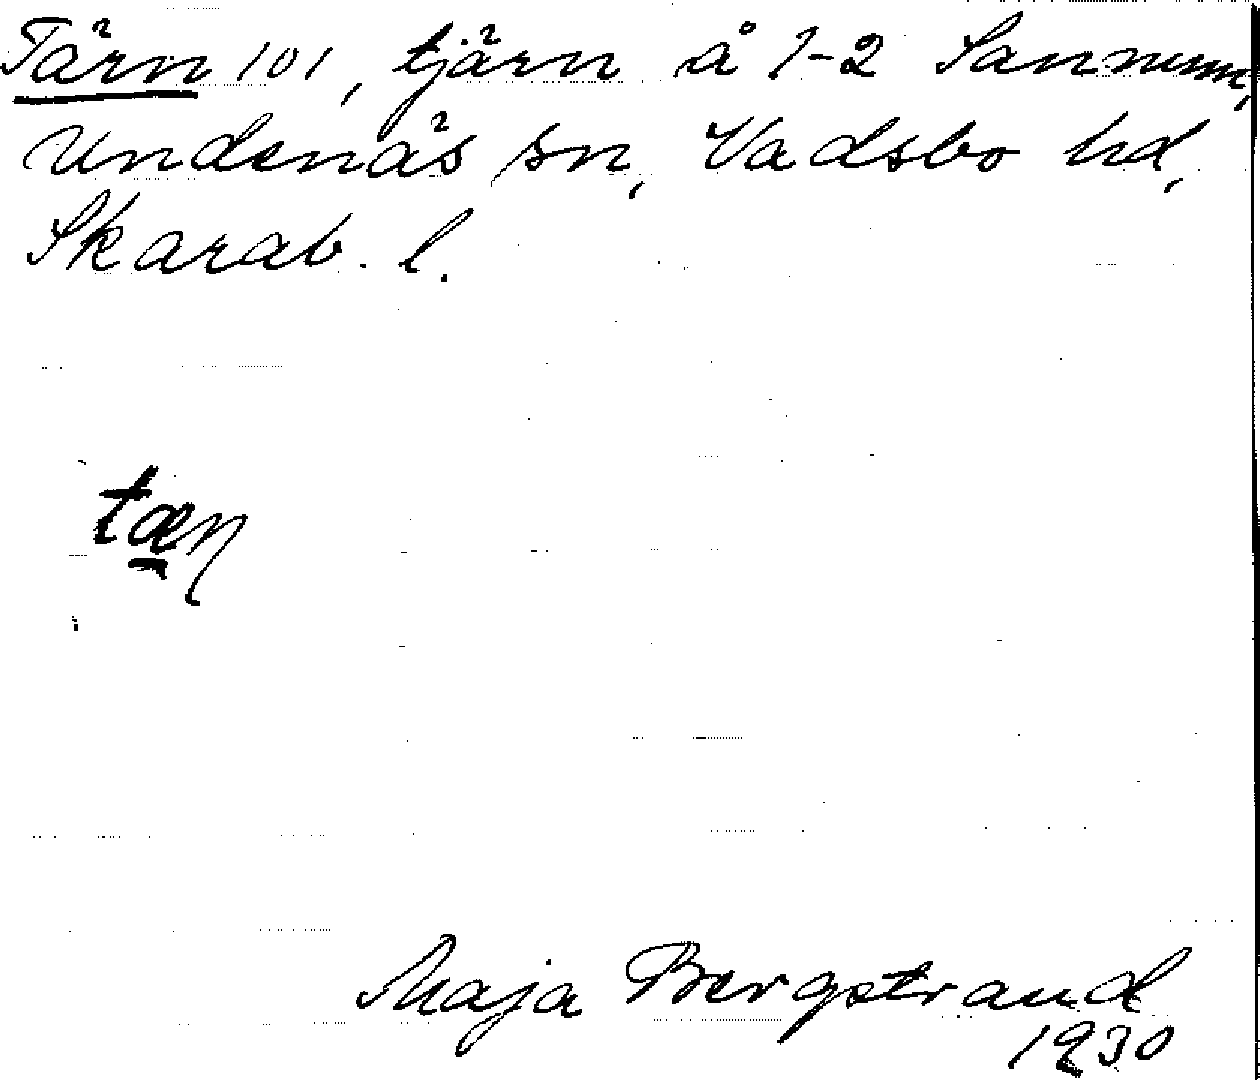 Tärn 101, tjärn å 1-2 Sannum,
Undenäs sn, Vadsbo hd,
Skarab. l.
tæɳ
Maja Bergstrand
1930